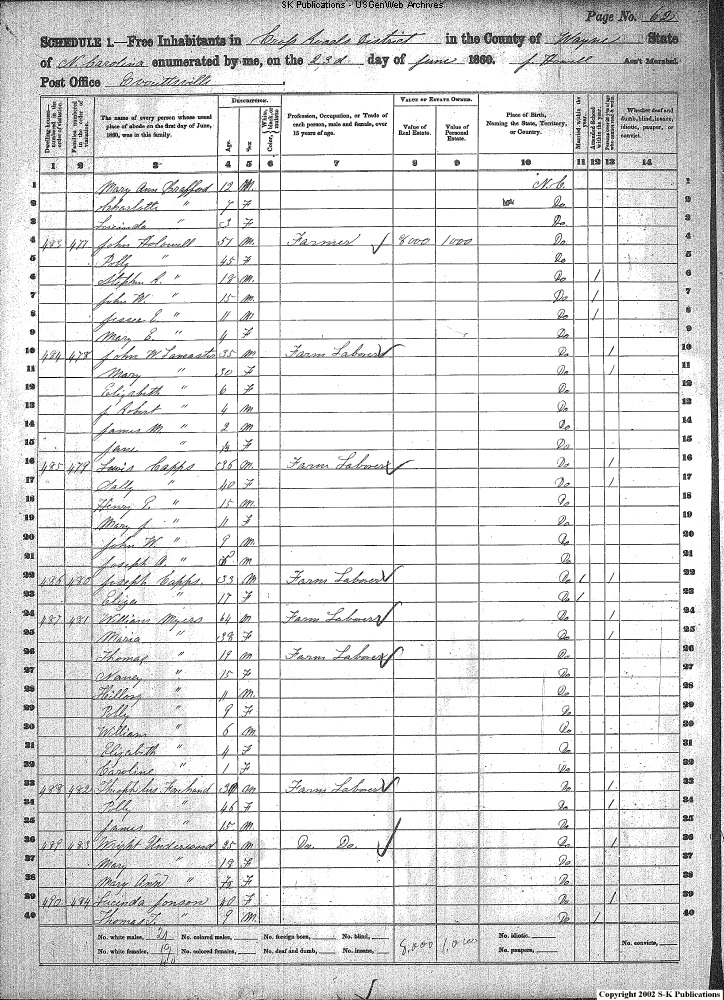 SK Publications - USGenWeb Archives
Page No. 62
SCHEDULE 1.—Free Inhabitants in Cross Roads District in the County of Wayne State
of N. Carolina enumerated by me, on the 23d day of June 1860. Ass't Marshal.
Post Office
DESCRIPTION. VALUE OF ESTATE OWNED.
Dwelling-houses numbered in the order of visitation. Families numbered in the order of visitation. The name of every person whose usual place of abode on the first day of June, 1860, was in this family. Age. Sex. Color, White, black, or mulatto. Profession, Occupation, or Trade of each person, male and female, over 15 years of age. Value of Real Estate. Value of Personal Estate. Place of Birth, Naming the State, Territory, or Country. Married within the year. Attended School within the year. Whether deaf and dumb, blind, insane, idiotic, pauper, or convict.
1 2 3 4 5 6 7 8 9 10 11 12 13 14
1 Mary Ann 12 M. N.C. 1
2 Charlotte " 7 F Do 2
3 Lucinda " 3 F Do 3
4 483 477 John Holowell 51 M. Farmer 8000 1000 Do 4
5 Polly " 45 F Do 5
6 Stephen R. " 18 M. Do / 6
7 John W. " 15 M. Do / 7
8 Jesse E. " 11 M Do / 8
9 Mary E. " 4 F Do 9
10 484 478 John W. Lancaster 35 M Farm Laborer Do / 10
11 Mary " 30 F Do / 11
12 Elizabeth " 6 F Do 12
13 J Robert " 4 M. Do 13
14 James M. " 2 M Do 14
15 Jane " F Do 15
16 485 479 Lewis Capps 36 M. Farm Laborer Do / 16
17 Sally " 40 F Do / 17
18 Henry E. " 15 M. Do 18
19 Mary J. " 11 F Do 19
20 John W. " 9 M. Do 20
21 Joseph A. " M Do 21
22 486 480 Joseph Capps. 33 M Farm Laborer Do / / 22
23 Eliza " 17 F Do /
24 487 481 William Myers 64 M Farm Laborer Do / 24
25 Maria " 38 F Do / 25
26 Thomas " 19 M Farm Laborer Do 26
27 Nancy " 15 F Do 27
28 " 11 M. Do 28
29 Polly " 9 F Do 29
30 William " 6 M Do 30
31 Elizabeth " 4 F Do 31
32 Caroline " 1 F Do 32
33 488 482 M Farm Laborer Do / 33
34 Polly " 46 F Do / 34
35 James " 15 M. Do 35
36 489 483 Wright Underwood 25 M Do. Do. Do / 36
37 Mary " 19 F Do 37
38 Mary Ann " F Do 38
39 490 484 Lucinda Jonson 40 F Do /
40 Thomas T. " 9 M Do / 40
No. white males, 21 No. colored males, No. foreign born, No. blind, 8,000 No. idiotic, No. convicts,
No. white females, 19 No. colored females, No. deaf and dumb, No. insane, No. paupers,
Copyright 2002 S-K Publications